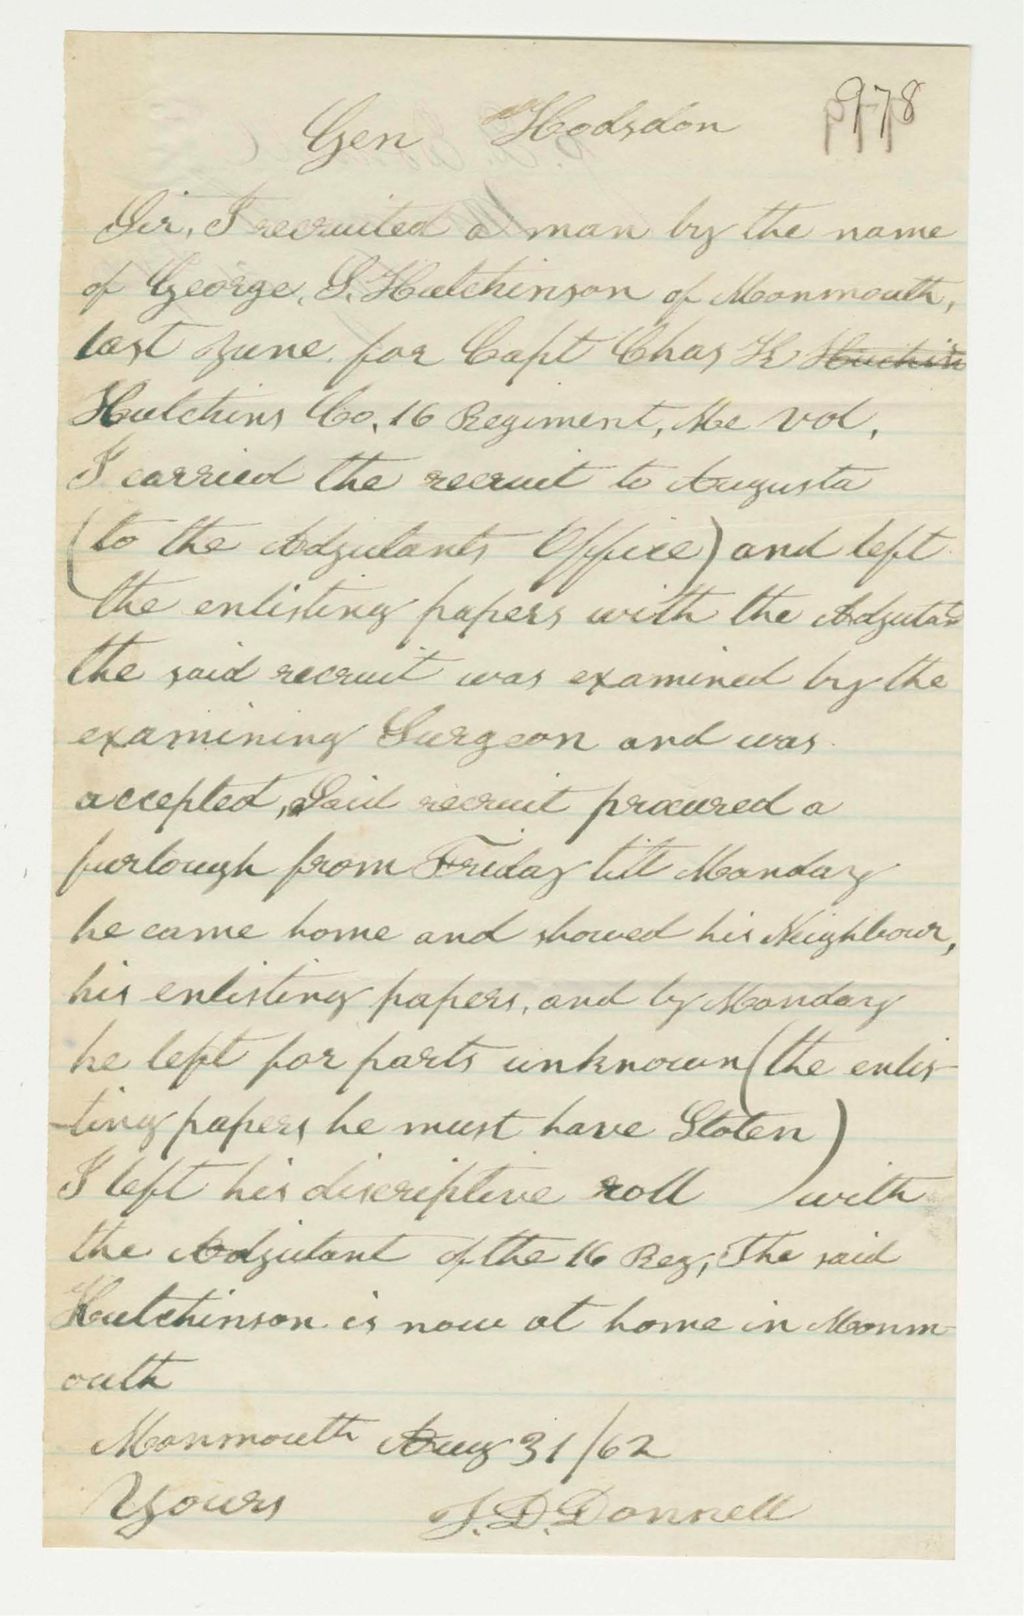 978
Gen Hodsdon
Sir, I recruited a man by the name
of George, S. Hutchinson of Monmouth,
last June for Capt Chas K Huchin
Hutchins Co. 16 Regiment, Me Vol,
I carried the recruit to Augusta
(to the Adjutants Office) and left
the enlisting papers with the Adjutat
the said recruit was examined by the
examining Surgeon and was
accepted, Said recruit procured a
furlough from Friday till Monday
he came home and showed his Neighbour,
his enlisting papers, and by Monday
he left for parts unknown (the enlis-
-ting papers he must have Stolen)
I left his discriptive roll with
the Adjutant of the 16 Reg, The said
Hutchinson is now at home in Monm-
outh
Monmouth Aug 31/62
Yours J. D. Donnell